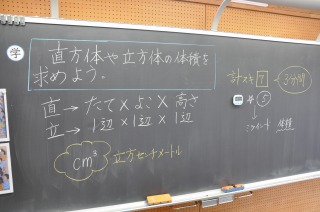 学
直方体や立方体の体積を
求めよう。
直→たて×よこ×高さ
立→1辺×1辺×1辺
cm³ 立方センチメートル
計スキ 7 3分間
⑤
ポイント 体積